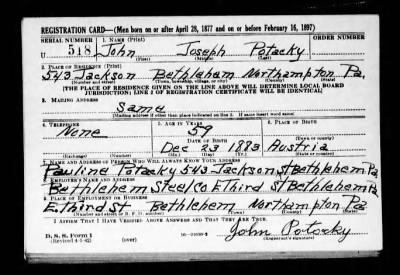 REGISTRATION CARD—(Men born on or after April 28, 1877 and on or before February 16, 1897)
SERIAL NUMBER 1. NAME (Print) ORDER NUMBER
U 518 John Joseph Potocky
(First) (Middle) (Last)
2. PLACE OF RESIDENCE (Print)
543 Jackson Bethlehem Northampton Pa.
(Number and street) (Town, township, village, or city) (County) (State)
[THE PLACE OF RESIDENCE GIVEN ON THE LINE ABOVE WILL DETERMINE LOCAL BOARD
JURISDICTION; LINE 2 OF REGISTRATION CERTIFICATE WILL BE IDENTICAL]
3. MAILING ADDRESS
Same
[Mailing address if other than place indicated on line 2. If same insert word same]
4. TELEPHONE 5. AGE IN YEARS 6. PLACE OF BIRTH
None 59
DATE OF BIRTH (Town or county)
Dec 23 1883 Austria
(Exchange) (Number) (Mo.) (Day) (Yr.) (State or country)
7. NAME AND ADDRESS OF PERSON WHO WILL ALWAYS KNOW YOUR ADDRESS
Pauline Potocky 543 Jackson St Bethlehem Pa
8. EMPLOYER'S NAME AND ADDRESS
Bethlehem Steel Co E Third St Bethlehem Pa
9. PLACE OF EMPLOYMENT OR BUSINESS
E. Third St Bethlehem Northampton Pa
(Number and street or R. F. D. number) (Town) (County) (State)
I AFFIRM THAT I HAVE VERIFIED ABOVE ANSWERS AND THAT THEY ARE TRUE.
John Potocky
D. S. S. Form 1
(Revised 4-1-42) (over) (Registrant's signature)